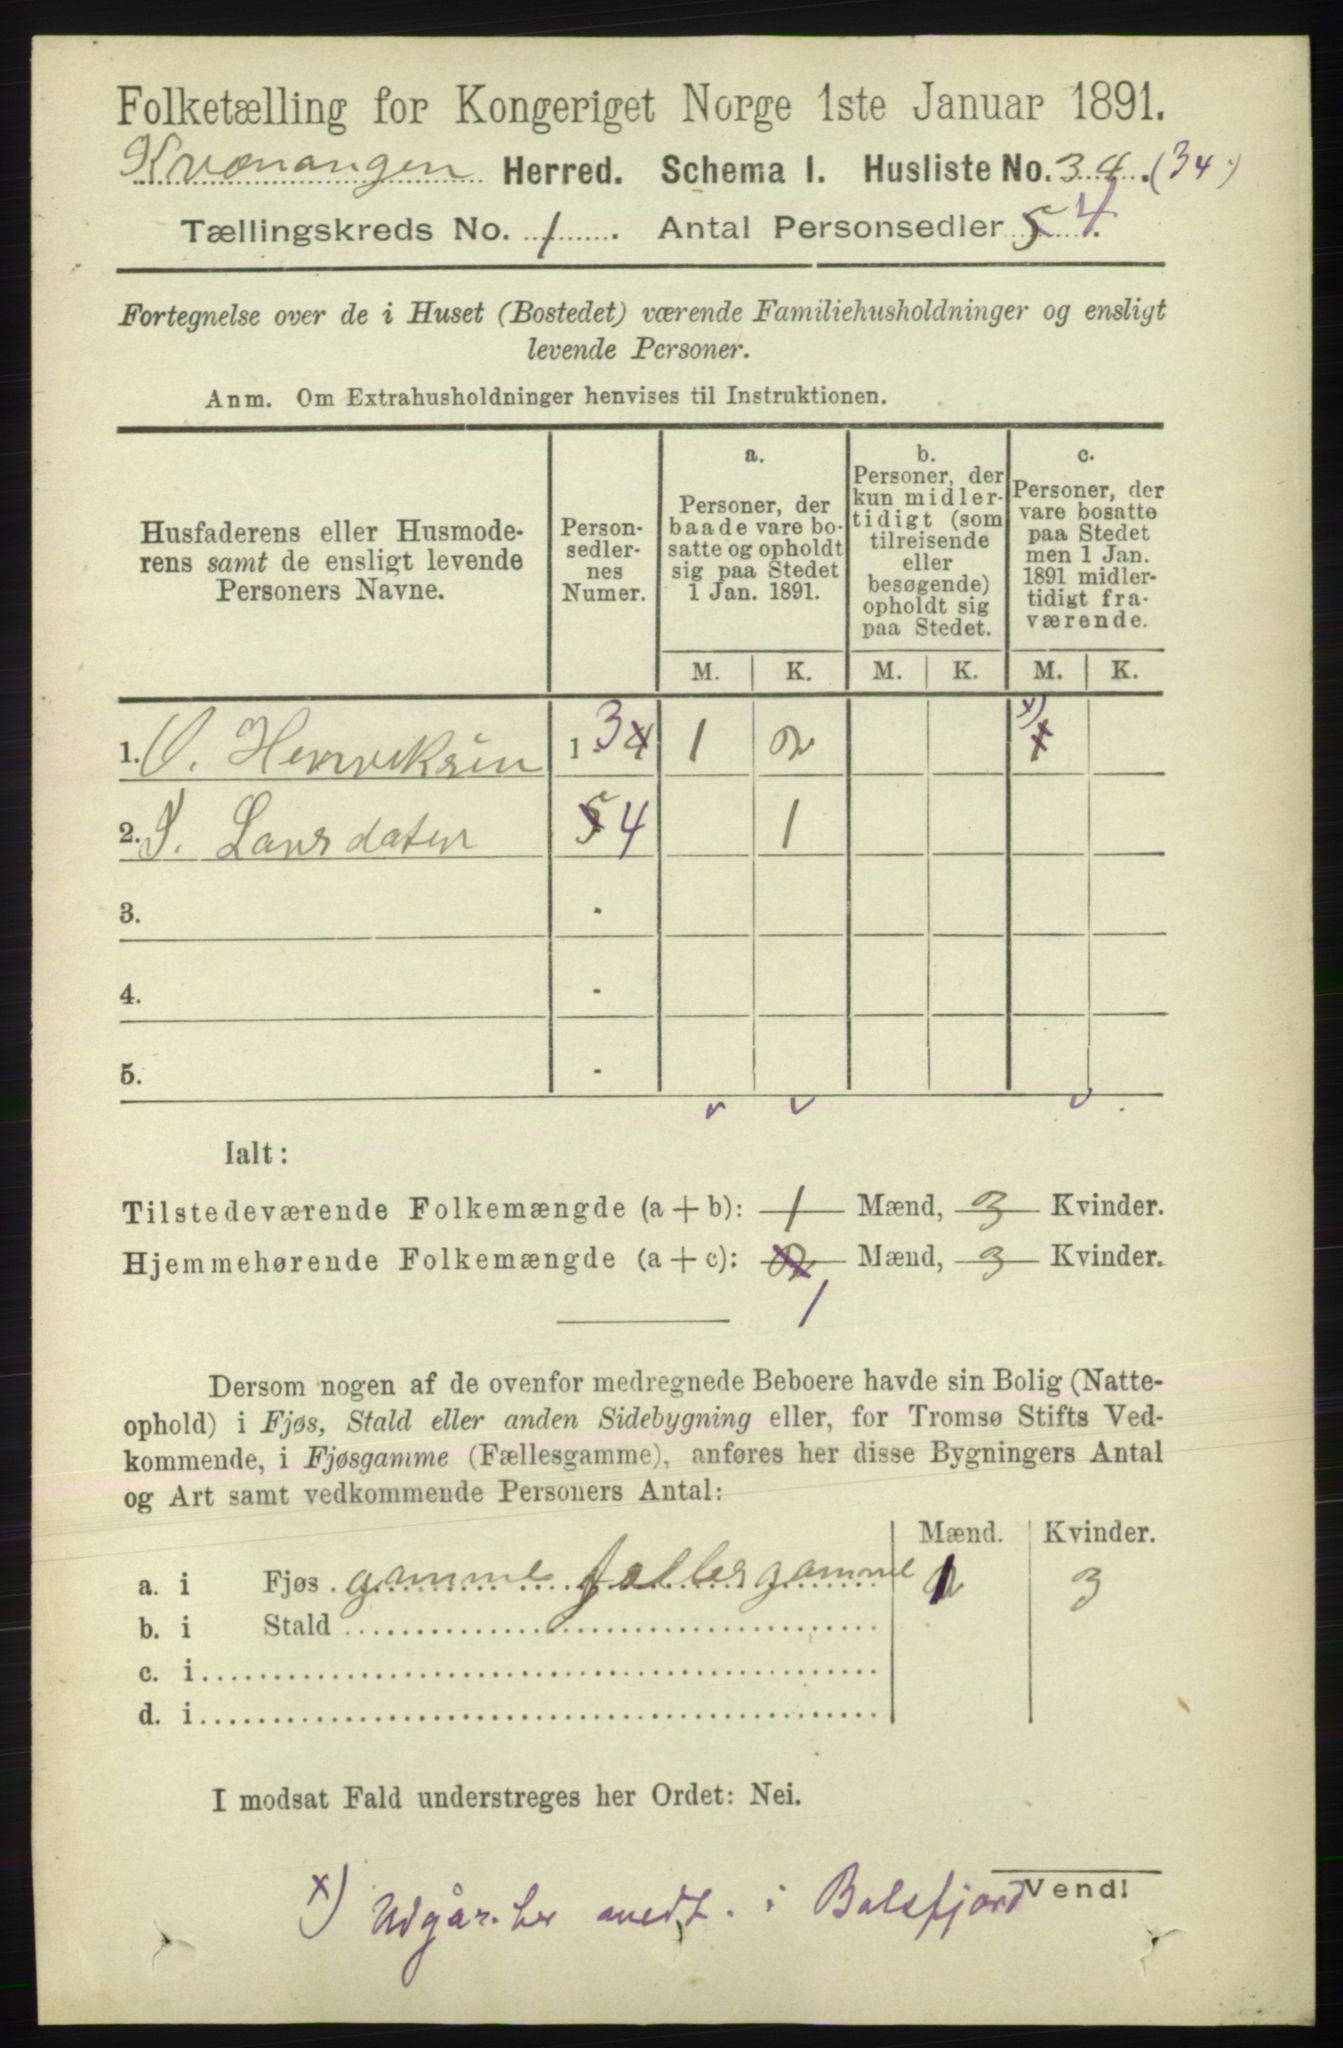 Folketælling for Kongeriget Norge 1ste Januar 1891.
Kvænangen Herred. Schema 1. Husliste No. 34. (34.)
Tællingskreds No. 1. Antal Personsedler 5 4.
Fortegnelse over de i Huset (Bostedet) værende Familiehusholdninger og ensligt
levende Personer.
Anm. Om Extrahusholdninger henvises til Instruktionen.
Husfaderens eller Husmode-
rens samt de ensligt levende
Personers Navne.
Person-
sedler-
nes
Numer.
a.
Personer, der
baade vare bo-
satte og opholdt
sig paa Stedet
1 Jan. 1891.
b.
Personer, der
kun midler-
tidigt (som
tilreisende
eller
besøgende)
opholdt sig
paa Stedet.
c.
Personer, der
vare bosatte
paa Stedet
men 1 Jan.
1891 midler-
tidigt fra-
værende.
M. K. M. K. M. K.
1. O. Henriksen 1-34 1 2 x) 1
2. S. Larsdatter 5 4 1
3. -
4. -
5. -
Ialt:
Tilstedeværende Folkemængde (a + b): 1 Mænd, 3 Kvinder.
Hjemmehørende Folkemængde (a + c): 2 Mænd, 3 Kvinder.
1
Dersom nogen af de ovenfor medregnede Beboere havde sin Bolig (Natte-
ophold) i Fjøs, Stald eller anden Sidebygning eller, for Tromsø Stifts Ved-
kommende, i Fjøsgamme (Fællesgamme), anføres her disse Bygningers Antal
og Art samt vedkommende Personers Antal:
Mænd. Kvinder.
a. i Fjøs gamme fællesgamme 1 3
b. i Stald
c. i
d. i
I modsat Fald understreges her Ordet: Nei.
Vend!
x) Udgår her medt. i Balsfjord